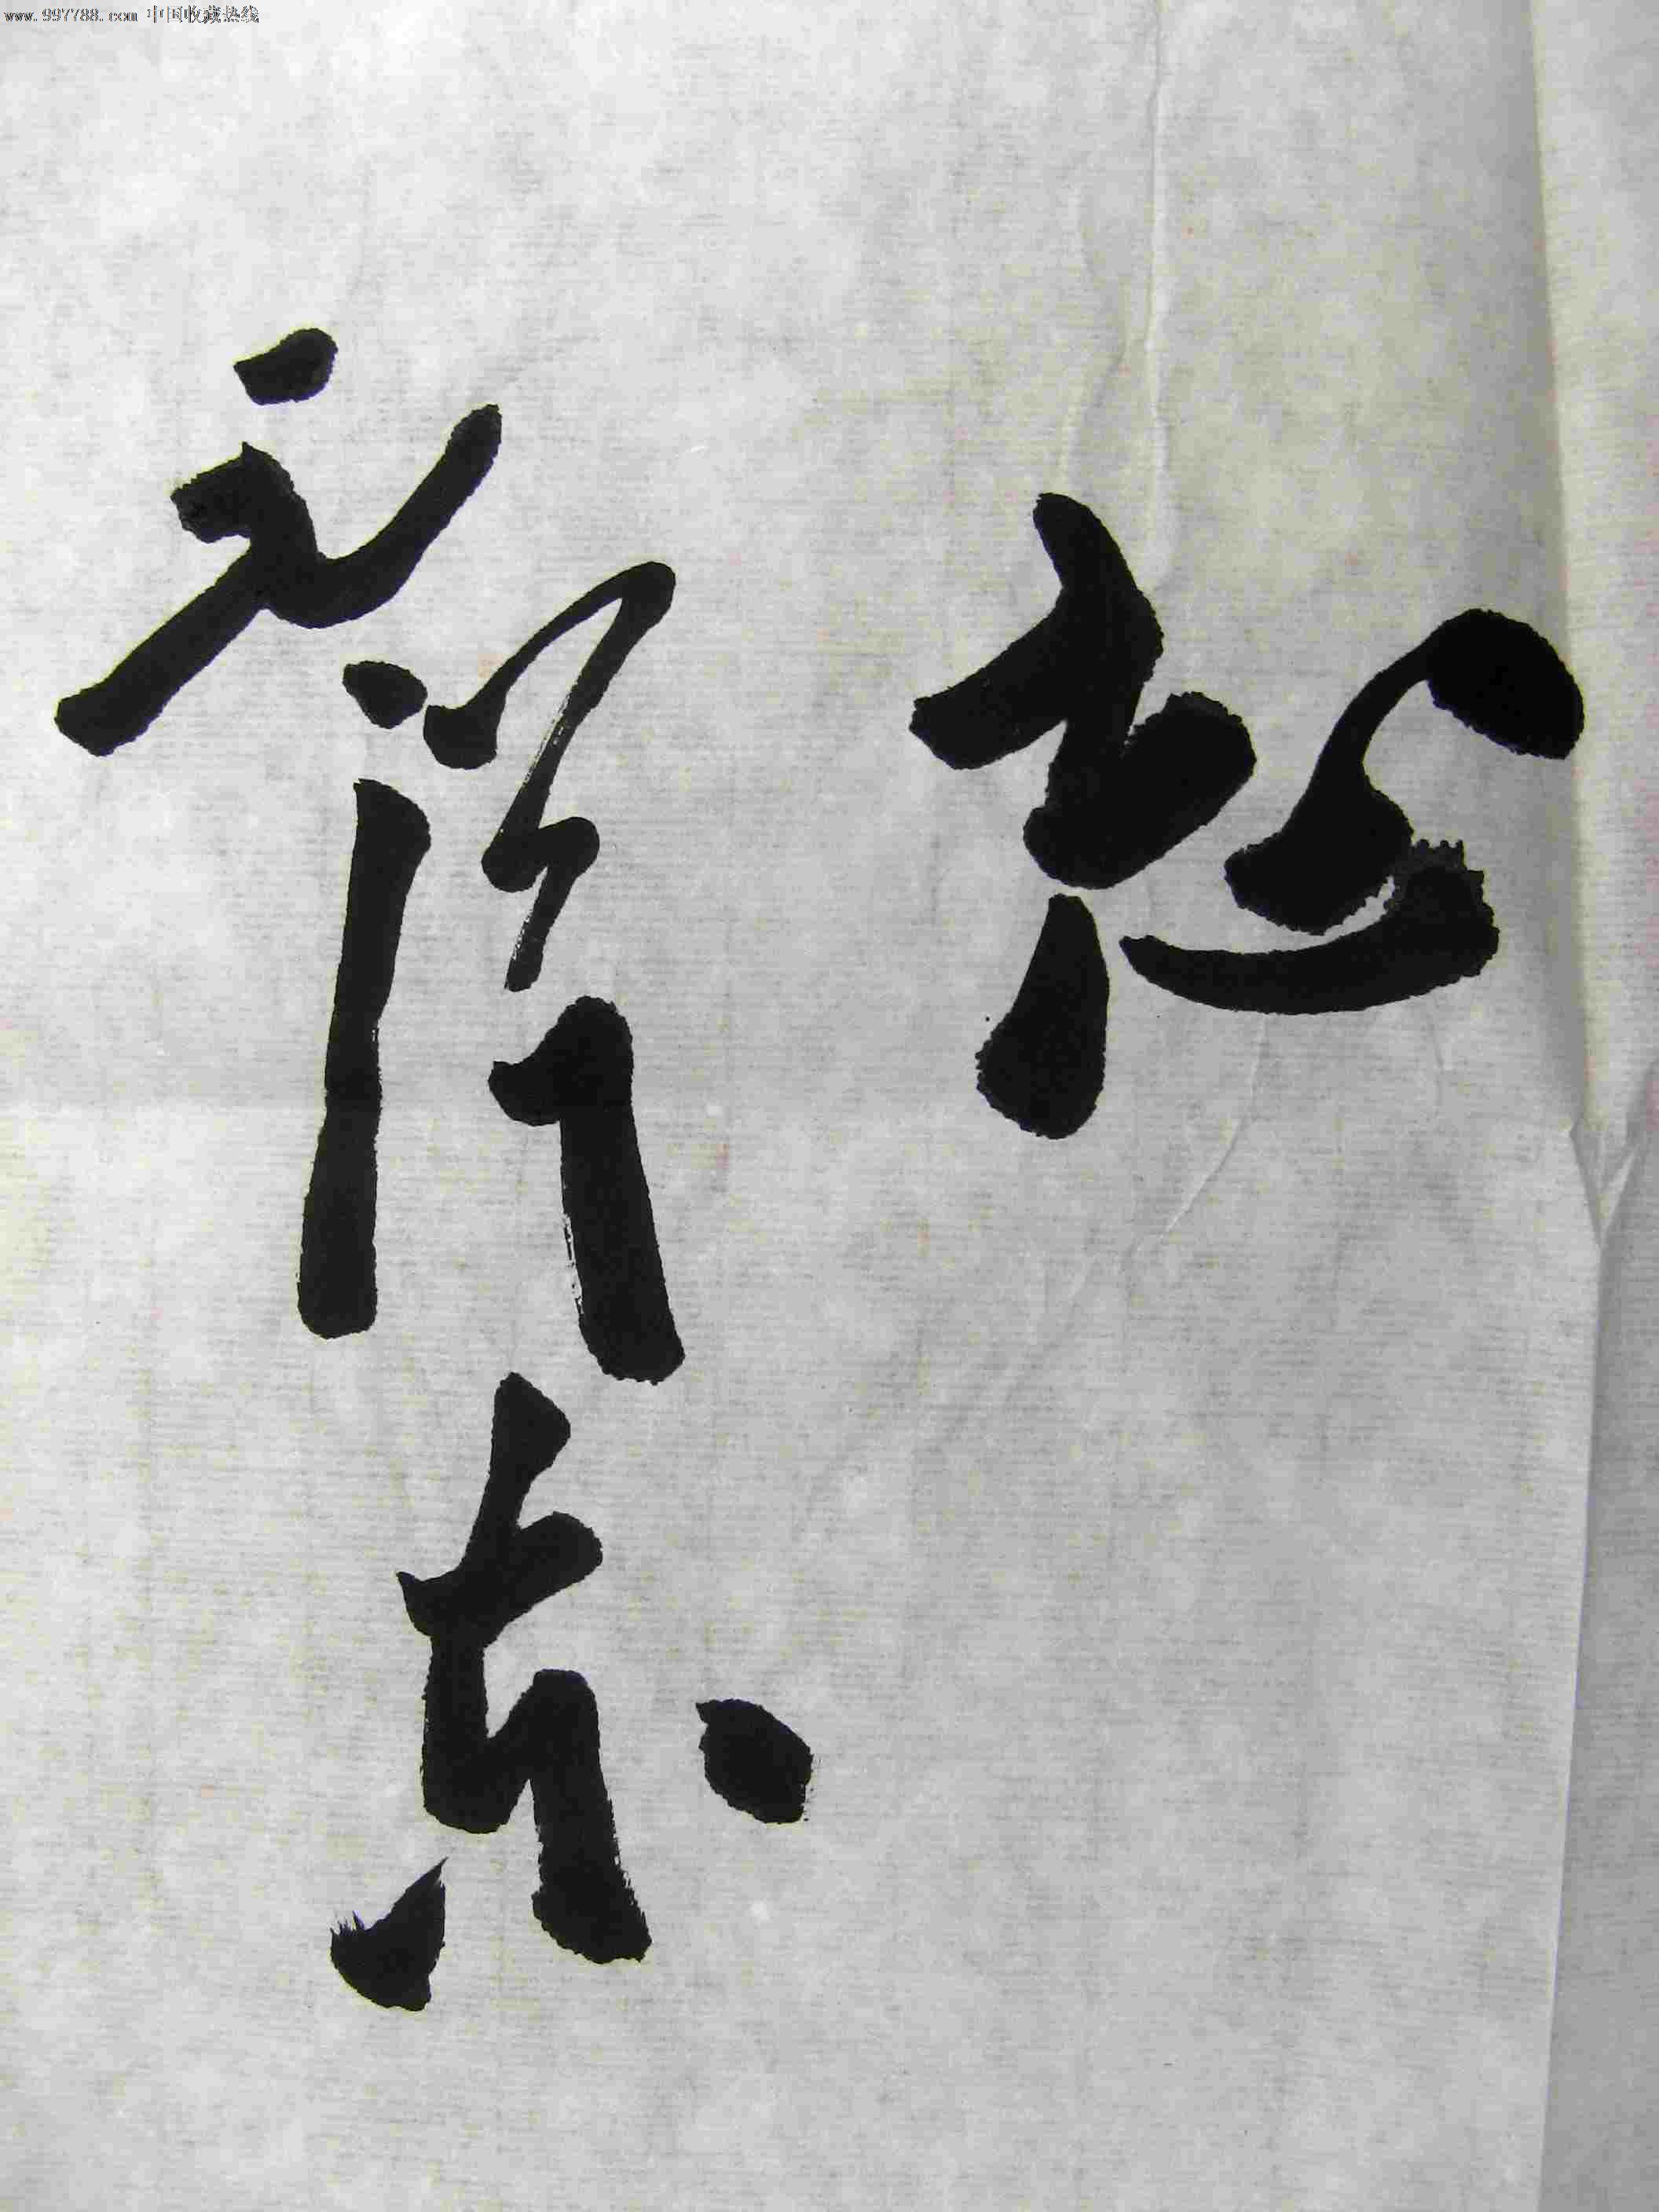 www.997788.com 中国收藏热线
毛泽东